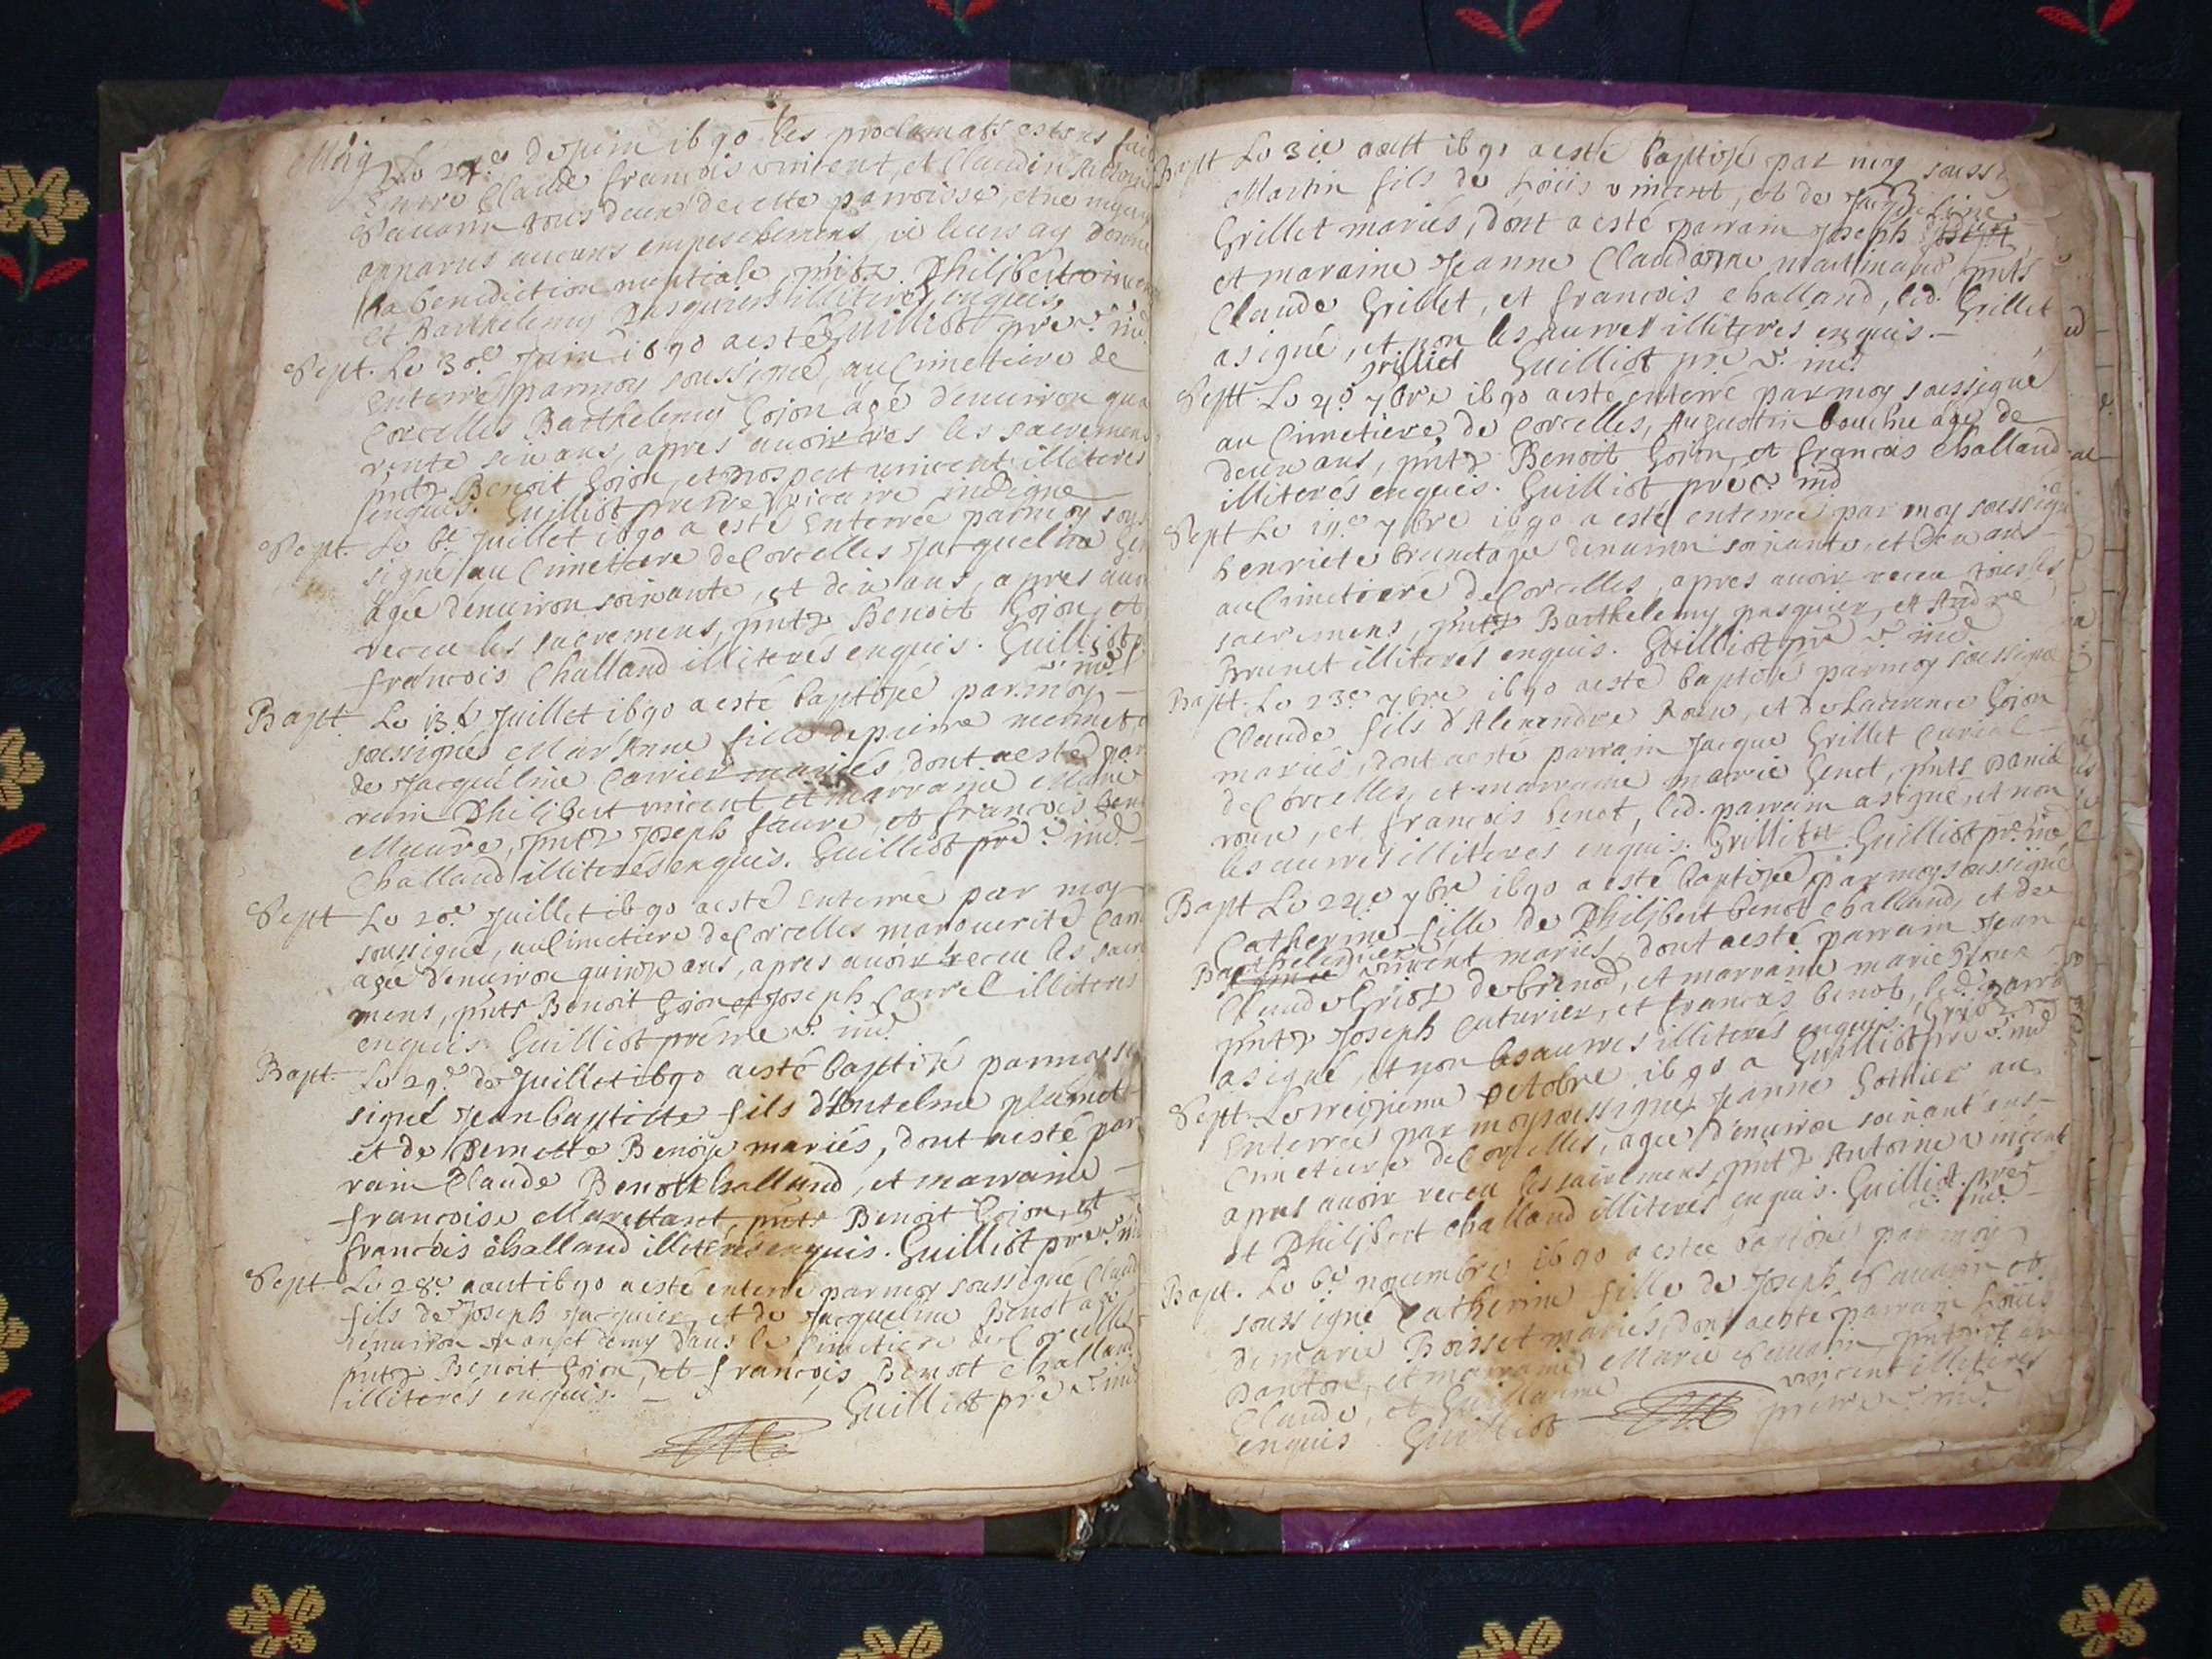 Mariag Le 27.e de juin 1690 les proclamats estants fait
Entre Claude francois vincent, et Claudine
tous deux de cette parroisse, et ne
apparus aucuns empeschemens je leurs ay donné
la benediction nuptiale, pntz Philibert vincent
et Barthelemy Pasquier illiterés enquis.
Guilliot pre v. ind.
Sept. Le 30.e Juin 1690 a esté
enterré par moy soussigné, au Cimetiere de
Corcelles Barthelemy Gojon agé d'environ qua
rente six ans, apres avoir res les sacremens
pntz Benoit Gojon, et prospert vincent illiteres
enquis. Guilliot prestre vicaire indigne
Sept. Le 6.e Juillet 1690 a esté enterrée par moy sous
signé au Cimetiere de Corcelles Jacqueline Gen
agée d'environ soixante, et dix ans, apres avoir
receu les sacremens, pntz Benoit Gojon, et
francois Challand illiterés enquis. Guilliot p.
v. ind.
Bapt. Le 13.e Juillet 1690 a esté baptisée par moy
soussigné Mar Anne fille de pierre mermet
de Jacqueline Carrier mariés, dont a esté par
rain Philibert vincent et marraine Marie
Maure, pntz Joseph faure, et francois ben
Challand illiterés enquis. Guilliot pre v. ind.
Sept Le 20.e Juillet 1690 a esté enterrée par moy
soussigné, au Cimetiere de Corcelles marguerite Carr
agée d'environ quinze ans, apres avoir receu les sacre
mens, pnts Benoit Gojon et Joseph Carrel illiteres
enquis. Guilliot prestre v. ind.
Bapt. Le 29.e de Juillet 1690 a esté baptisé par moy sous
signé Jean baptiste fils d'Antelme plumet
et de Pernette Benoise mariés, dont a esté par
rain Claude Benot challand, et marraine
francoise Marettant, pnts Benoit Gojon, et
francois challand illiterés enquis. Guilliot pre v. ind
Sept. Le 28.e aout 1690 a esté enterré par moy soussigné Claud
fils de Joseph Jacquier, et de Jacqueline Benot agé
d'environ an et demy dans le Cimetiere de Corcelles
pntz Benoit Gojon, et francois Benot challand
illiterés enquis. Guilliot pre v. ind
Bapt Le 31e aoust 1690 a esté baptisé par moy souss
Martin fils de Loüis vincent, et de Jacqueline
Grillet mariés, dont a esté parrain Joseph
et maraine Jeanne Claudaine martinand pnts
Claude Grillet, et francois challand, led. Grillet
a signé, et non les autres illiteres enquis.
grilliet Guilliot pre v. ind.
Sept. Le 4.e 7bre 1690 a esté enterré par moy soussigné
au Cimetiere de Corcelles, Augustin bouche agé de
deux ans, pntz Benoit Gojon, et francois challand
illiterés enquis. Guilliot pre v. ind
Sept Le 7bre 1690 a esté enterrée par moy soussigné
henriete brunet agée d'environ soixante, et dix ans
au Cimetiere de Corcelles, apres avoir receu tous les
sacremens, pntz Barthelemy pasquier, et Andre
Brunet illiterés enquis. Guilliot pre v. ind
Bapt. Le 23.e 7bre 1690 a esté baptisé par moy soussigné
Claude fils d'Alexandre Roux, et de Laurance Gojon
mariés, dont a esté parrain Jacque Grillet Curial
de Corcelles, et marraine marie Genet, pnts Daniel
roux, et francois benot, led. parrain a signé, et non
les autres illiterés enquis. Grilliet Guilliot pre ind
Bapt Le 24.e 7bre 1690 a esté baptisée par moy soussigné
Catherine fille de Philibert benot challand, et de
Barthelemie vincent mariés, dont a esté parrain Jean
Claude Griot de brenod, et marraine marie Roux
pntz Joseph Cuturier, et francois benot, led. parra
a signé, et non les autres illiterés enquis. Griot
Guilliot pre v. ind
Sept. Le treizieme octobre 1690 a
enterrée par moy soussigné, Jeanne Gothier au
Cimetiere de Corcelles, agée d'environ soixant ans
apres avoir receu les sacremens, pntz Antoine vincent
et Philibert challand illiterés enquis. Guilliot pre
v. ind.
Bapt. Le 6.e novembre 1690 a estée baptisée par moy
soussigné Catherine fille de Joseph et
de marie Boisset mariés, dont a esté parrain Loüis
et marraine Marie
Claude, et Guillaume vincent illiteres
enquis Guilliot prestre v. ind.